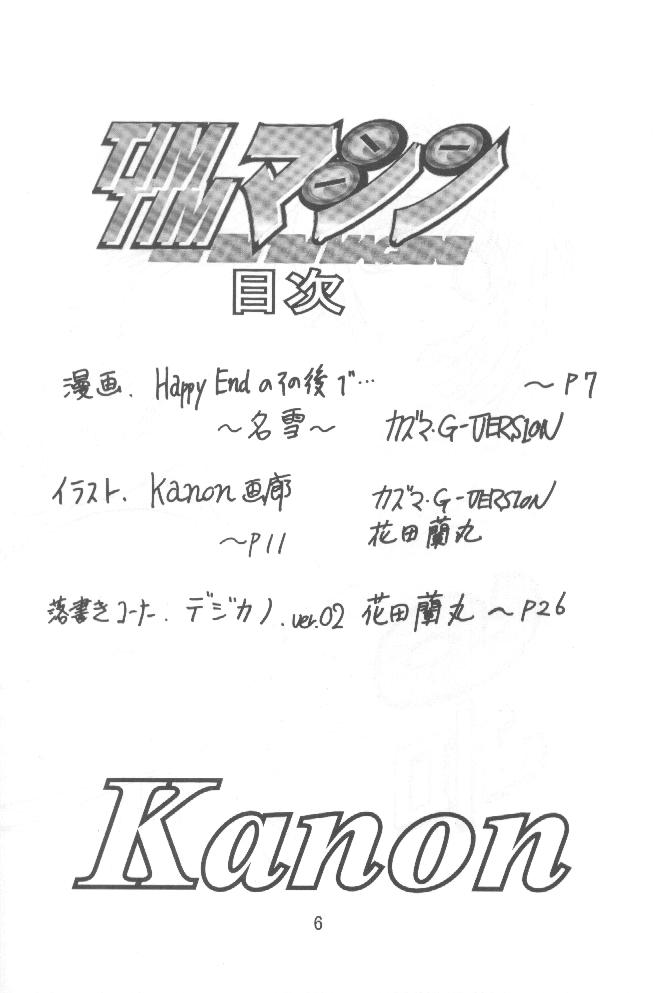 TIM
TIMマシン
目次
漫画、Happy Endのその後で… 〜P7
〜名雪〜 カズマ・G-VERSION
イラスト、Kanon画廊 カズマ・G-VERSION
〜P11 花田蘭丸
落書きコーナー、デジカノ.ver.02 花田蘭丸 〜P26
Kanon
6